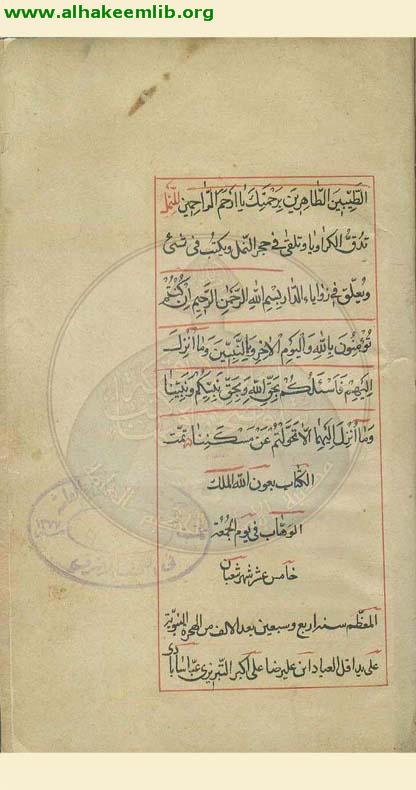 www.alhakeemlib.org
الطَّيِّبِينَ الطَّاهِرِينَ بِرَحْمَتِكَ يَا أَرْحَمَ الرَّاحِمِينَ للنمل
تدقّ الكراويا وتلقى فى حجر النمل ويكتب فى شئ
ويُعلّق فى زوايا الدار بِسْمِ اللهِ الرَّحْمٰنِ الرَّحِيمِ اِنْ كُنْتُمْ
تُؤْمِنُونَ بِاللهِ وَالْيَوْمِ الْاٰخِرِ وَالنَّبِيِّينَ وَمَا اُنْزِلَ
اِلَيْهِمْ فَاَسْئَلُكُمْ بِحَقِّ اللهِ وَبِحَقِّ نَبِيِّكُمْ وَنَبِيِّنَا
وَمَا اُنْزِلَ اِلَيْهِمَا اِلَّا تَحَوَّلْتُمْ عَنْ مَسْكَنِنَا تمّت
الكتاب بعون الله الملك
الوهّاب فى يوم الجمعة
خامس عشر شهر شعبان
المعظم سنه اربع وسبعين بعد الالف من الهجرة النبويّة
على يد اقل العباد ابن عليرضا على اكبر التبريزى عبّاسابادى